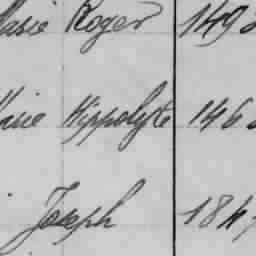 Marie Roger 149
Marie Hippolyte 146
Joseph 184